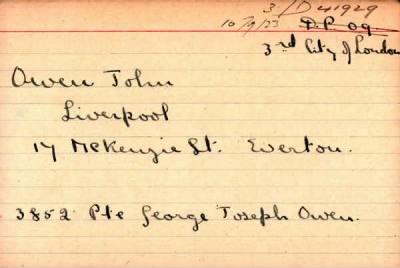 3/D41929
10/9/23 D.P. 09.
3rd City of London
Owen John
Liverpool
17 McKenzie St. Everton.
3852 Pte George Joseph Owen.